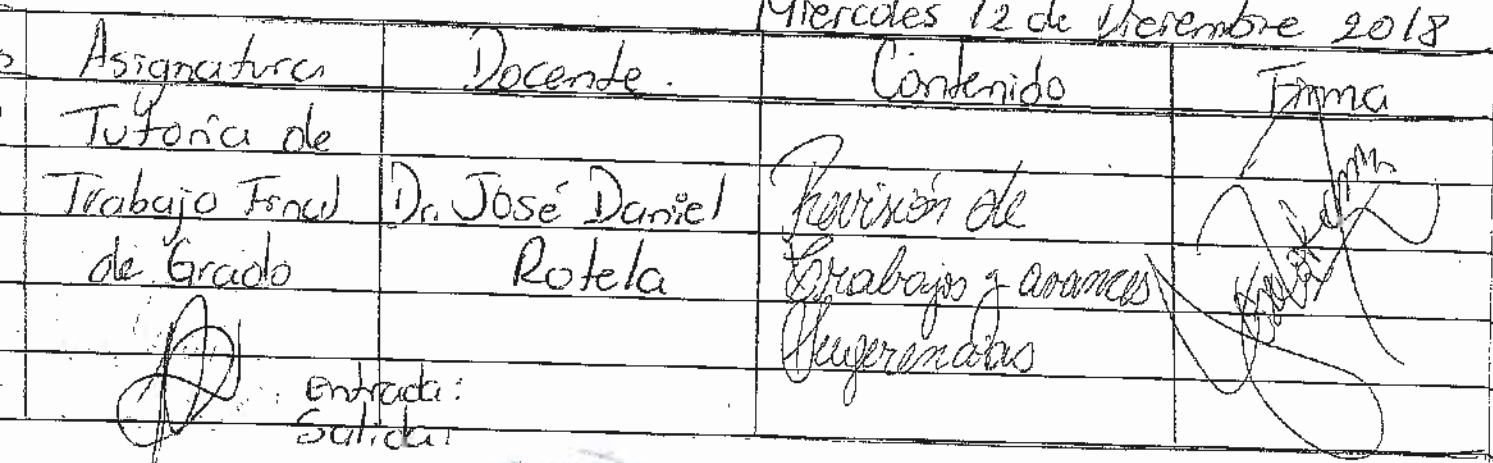 Miercoles 12 de Diciembre 2018
Asignatura Docente. Contenido Firma
Tutoría de
Trabajo Final Dr. José Daniel Revisión de
de Grado Rotela trabajos y avances
Sugerencias
Entrada:
Salida: